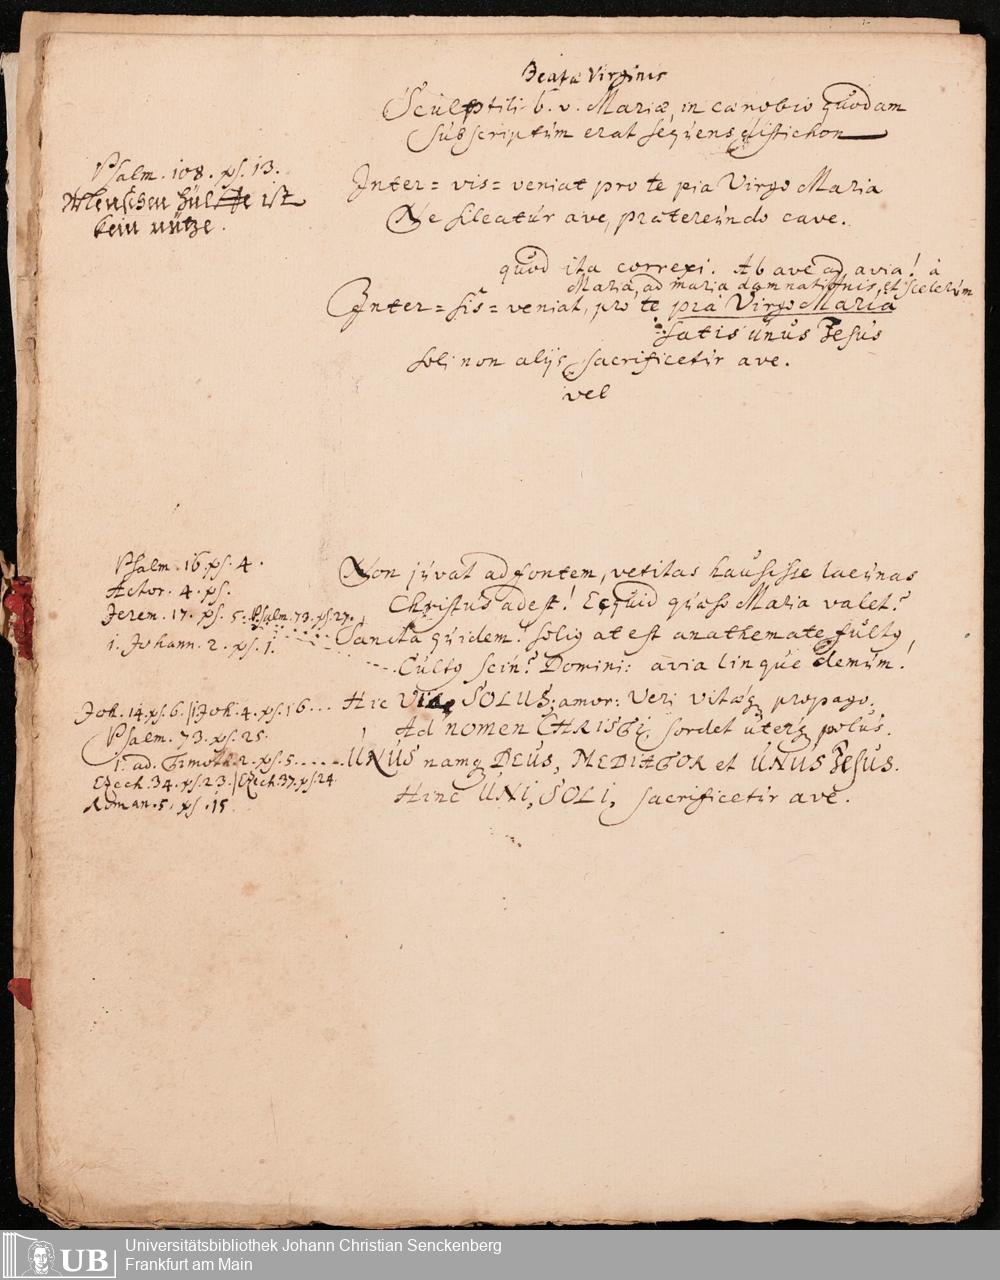 Beatæ Virginis
Sculptili b. v. Mariæ, in cœnobio quodam
subscriptum erat sequens distichon
Psalm. 108. ps. 13.
Menschen hülffe ist
kein nütze.
Inter = vis = veniat pro te pia Virgo Maria
Ne sileatur ave, prætereundo cave.
quod ita correxi. Ab ave ad avia! à
Maria, ad maria damnationis, et scelerum
Inter = sis = veniat, pro te pia Virgo Maria
satis unus Jesus
soli non alijs sacrificetur ave.
vel
Psalm. 16. ps. 4.
Actor. 4. ps.
Jerem. 17. ps. 5. Psalm. 73. ps. 27.
1. Johann. 2. ps. 1.
Non juvat ad fontem, vetitas hausisse lacunas
Christus adest! Ecquid quæso Maria valet?
Sancta quidem! soliq at est anathemate fultq
Cultq scin? Domini: avia linque demum!
Joh. 14. ps. 6. / 1 Joh. 4. ps. 16...
Psalm. 73. ps. 25.
1. ad. Timoth. 2. ps. 5.....
Ezech. 34. ps. 23. / Ezech. 37. ps. 24
Roman. 5. ps. 15.
Hic Via SOLUS; amor: Veri vitæq propago.
Ad nomen CHRISTI, sordet uterq polus.
UNUS namq DEUS, MEDIATOR et UNUS Jesus.
Hinc UNI, SOLI, sacrificetur ave.
UB
Universitätsbibliothek Johann Christian Senckenberg
Frankfurt am Main